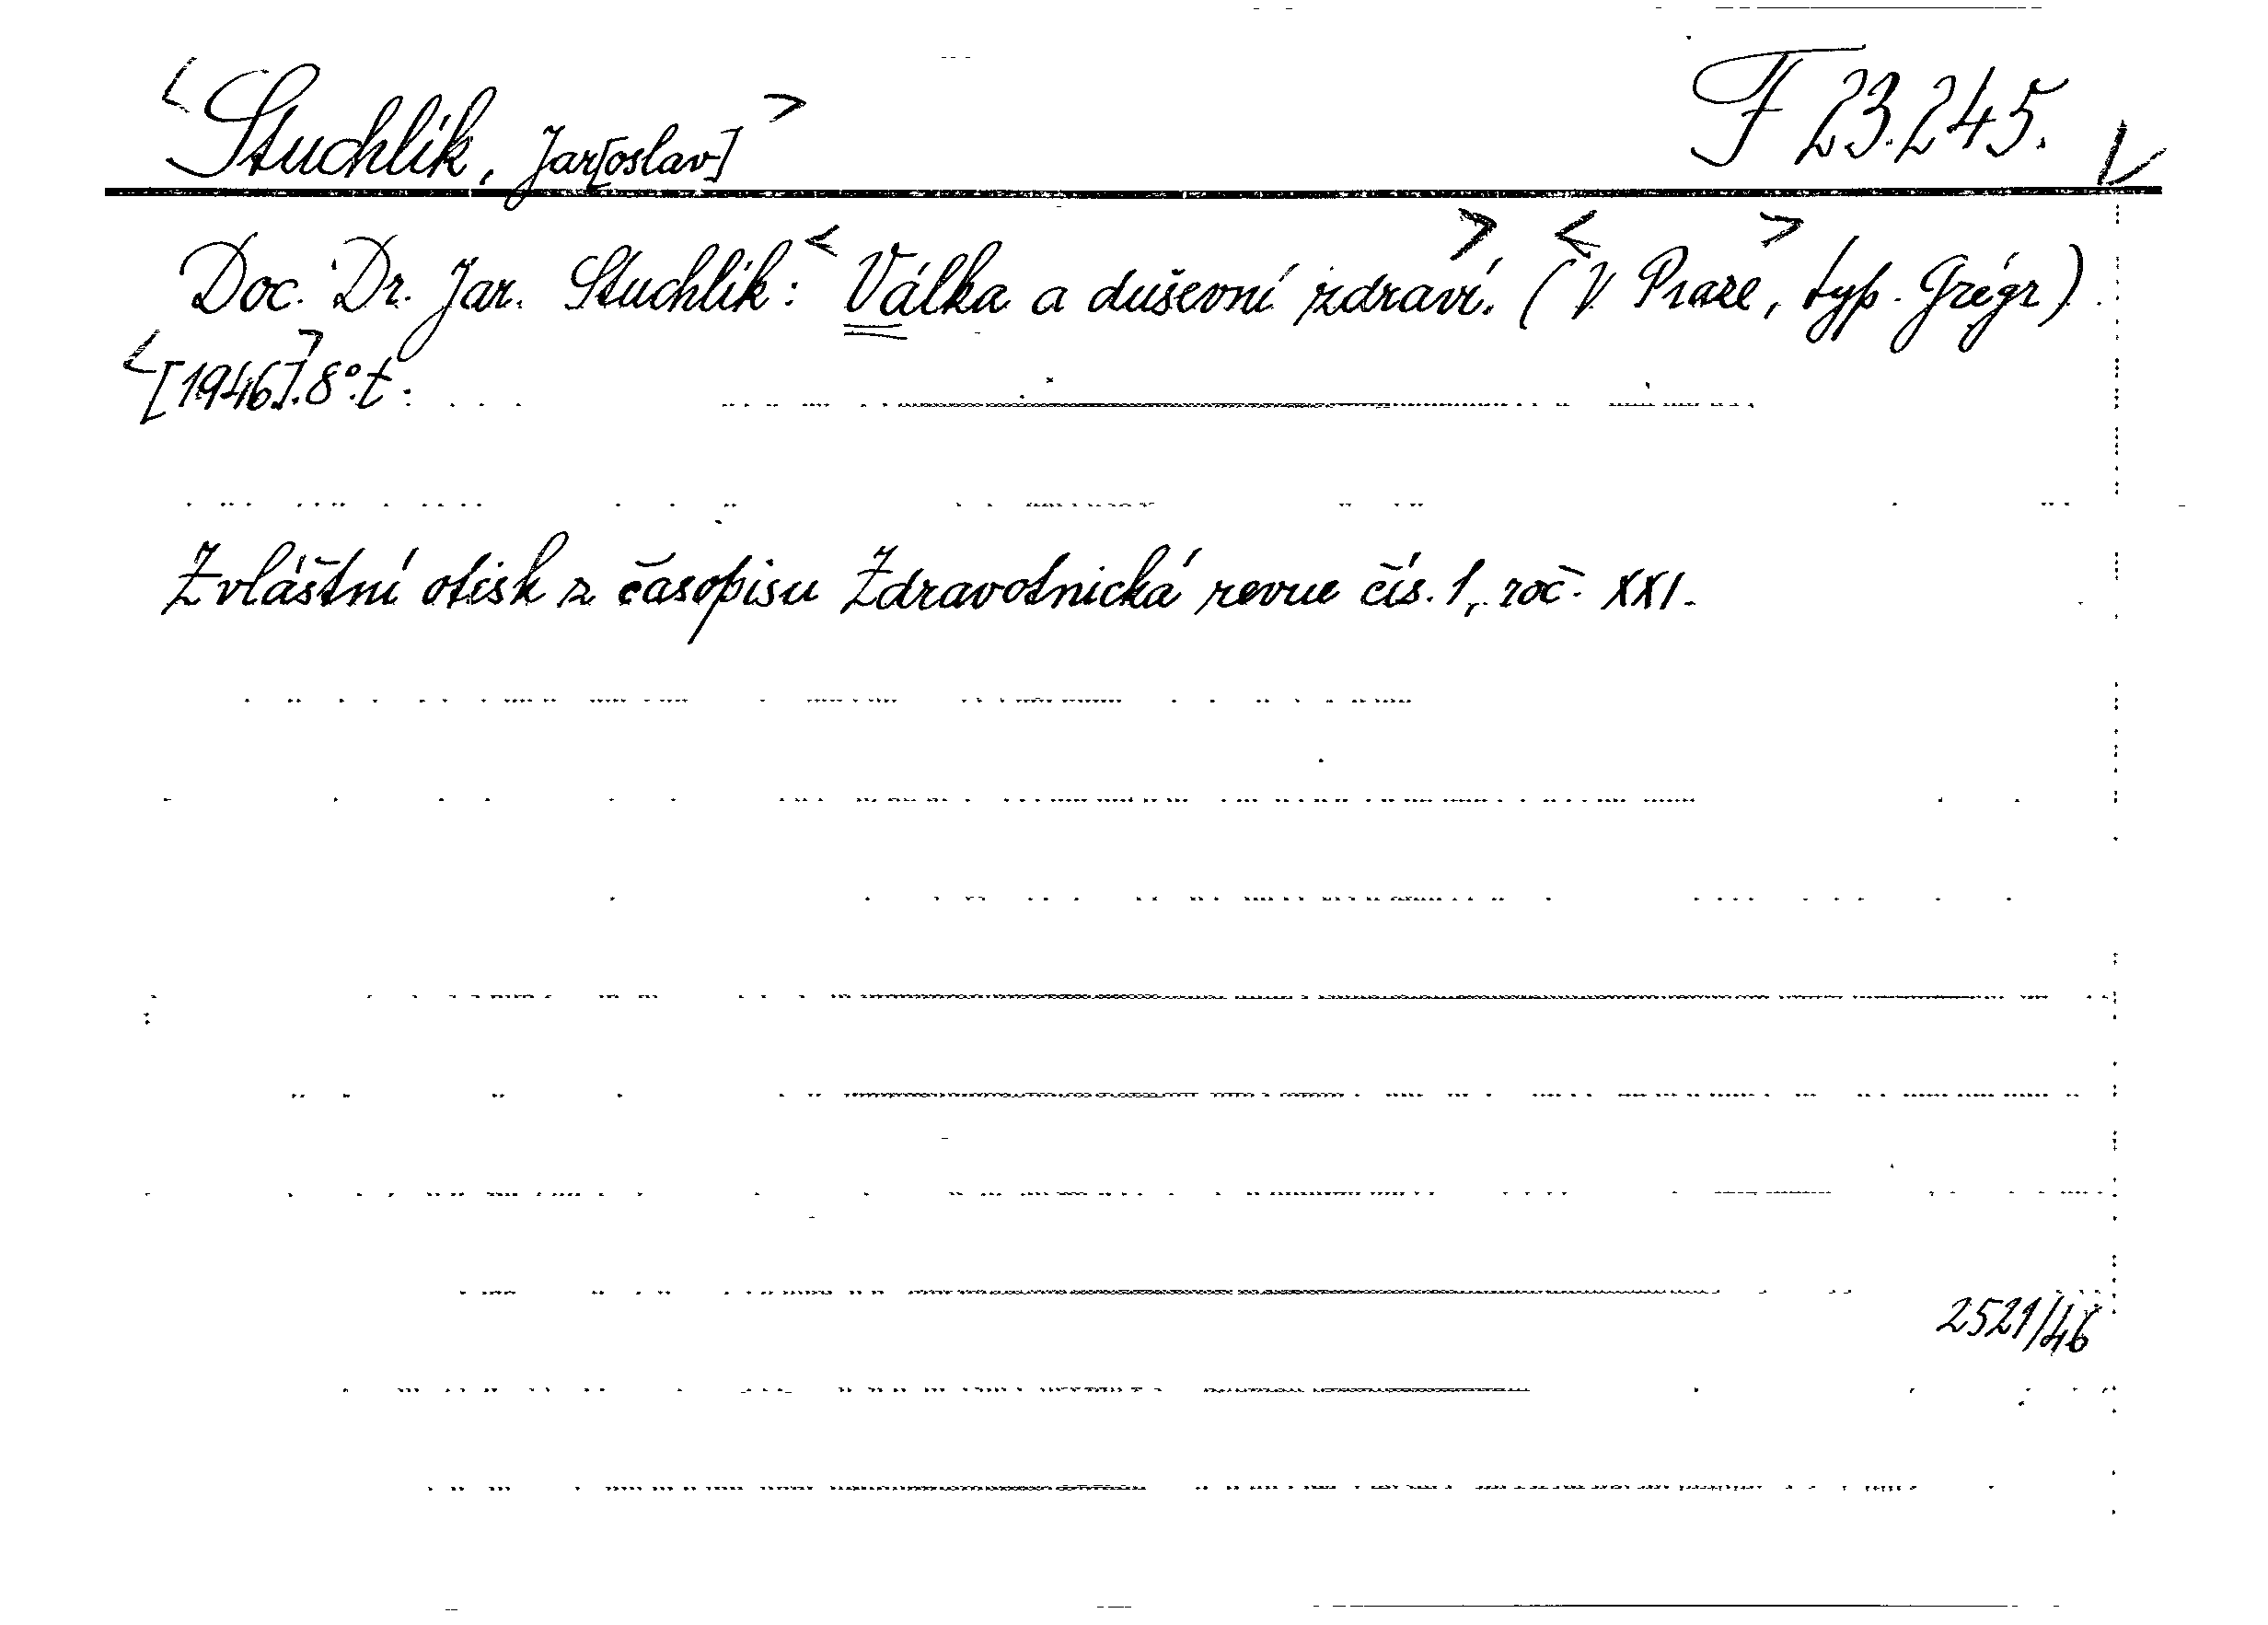 <Stuchlík, Jar[oslav]> F 23.245.
Doc. Dr. Jar. Stuchlík: <Válka a duševní zdraví.> (<V Praze>, typ. Grégr).
<[1946].> 8°. t.
Zvláštní otisk z časopisu Zdravotnická revue čís. 1, roč. XXI.
2521/46